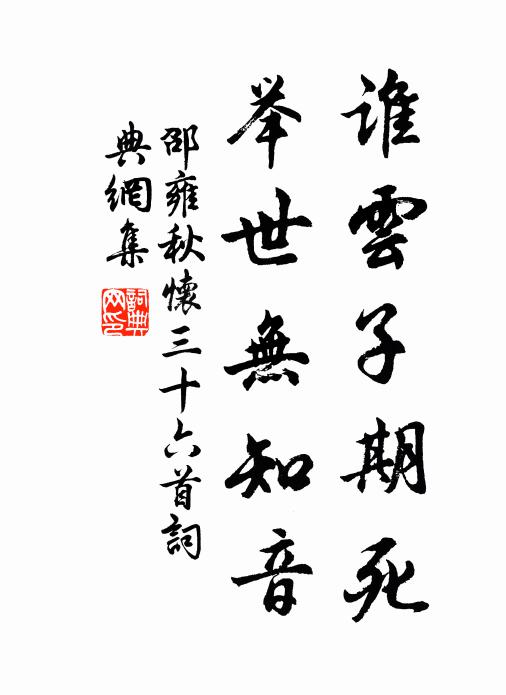 谁雲子期死
举世無知音
邵雍秋懷三十六首詞
典網集
詞典
网印